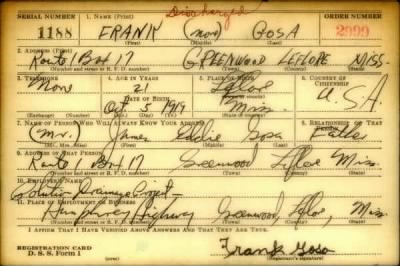 Discharged
SERIAL NUMBER 1. NAME (Print) ORDER NUMBER
1188 FRANK (NON) GOSA 2999
(First) (Middle) (Last)
2. ADDRESS (Print)
Route 1 Box 17 GREENWOOD LEFLORE MISS.
(Number and street or R. F. D. number) (Town) (County) (State)
3. TELEPHONE 4. AGE IN YEARS 5. PLACE OF BIRTH 6. COUNTRY OF CITIZENSHIP
None 21 Leflore U.S.A.
DATE OF BIRTH (Town or county)
Oct 5 1919 Miss.
(Exchange) (Number) (Mo.) (Day) (Yr.) (State or country)
7. NAME OF PERSON WHO WILL ALWAYS KNOW YOUR ADDRESS 8. RELATIONSHIP OF THAT PERSON
(Mr.) James Eddie Gosa Father
(Mr., Mrs., Miss) (First) (Middle) (Last)
9. ADDRESS OF THAT PERSON
Route 1 Box 17 Greenwood Leflore Miss
(Number and street or R. F. D. number) (Town) (County) (State)
10. EMPLOYER'S NAME
Drainage Project
11. PLACE OF EMPLOYMENT OR BUSINESS
Humphrey Highway Greenwood Leflore, Miss
(Number and street or R. F. D. number) (Town) (County) (State)
I AFFIRM THAT I HAVE VERIFIED ABOVE ANSWERS AND THAT THEY ARE TRUE.
REGISTRATION CARD
D. S. S. Form 1 Frank Gosa
(Registrant's signature)